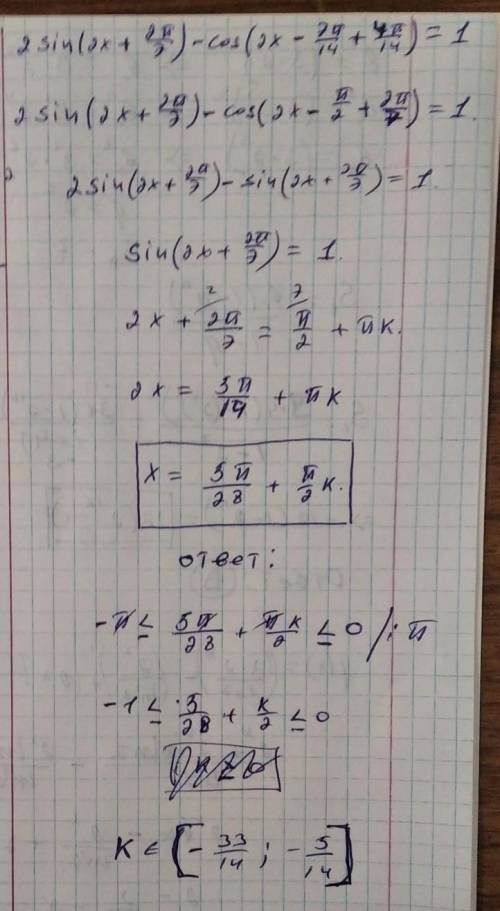 2sin(2x + 2π/7) - cos(2x - 7π/14 + 4π/14) = 1
2sin(2x + 2π/7) - cos(2x - π/2 + 2π/7) = 1.
2sin(2x + 2π/7) - sin(2x + 2π/7) = 1.
sin(2x + 2π/7) = 1.
2x + 2π/7 = π/2 + πk.
2x = 3π/14 + πk
x = 3π/28 + π/2 k.
ответ:
-π ≤ 3π/28 + πk/2 ≤ 0 /: π
-1 ≤ 3/28 + k/2 ≤ 0
k ∈ [-33/14 ; -5/14]